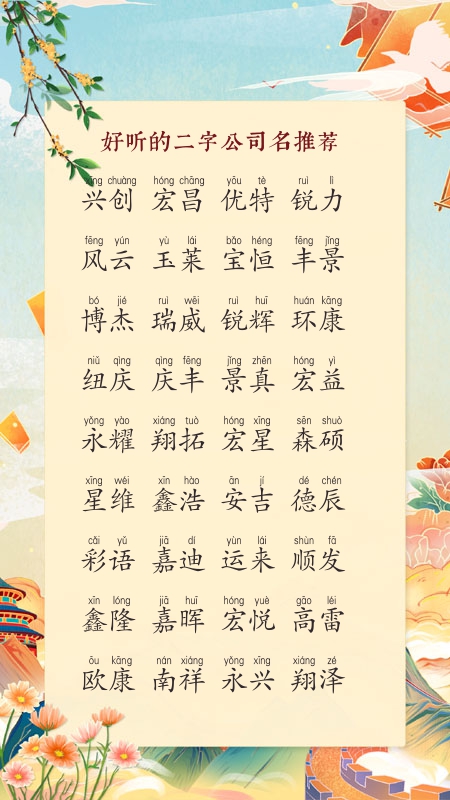 好听的二字公司名推荐
xīng chuàng hóng chāng yōu tè ruì lì
兴创 宏昌 优特 锐力
fēng yún yù lái bǎo héng fēng jǐng
风云 玉莱 宝恒 丰景
bó jié ruì wēi ruì huī huán kāng
博杰 瑞威 锐辉 环康
niǔ qìng qìng fēng jǐng zhēn hóng yì
纽庆 庆丰 景真 宏益
yǒng yào xiáng tuò hóng xīng sēn shuò
永耀 翔拓 宏星 森硕
xīng wéi xīn hào ān jí dé chén
星维 鑫浩 安吉 德辰
cǎi yǔ jiā dí yùn lái shùn fā
彩语 嘉迪 运来 顺发
xīn lóng jiā huī hóng yuè gāo léi
鑫隆 嘉晖 宏悦 高雷
ōu kāng nán xiáng yǒng xīng xiáng zé
欧康 南祥 永兴 翔泽